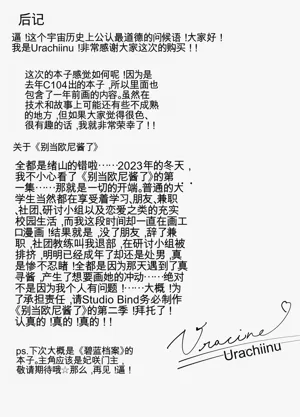 后记
逼！这个宇宙历史上公认最道德的问候语！大家好！
我是Urachiinu！非常感谢大家这次的购买！！
这次的本子感觉如何呢！因为是
去年C104出的本子，所以里面也
包含了一年前画的内容。虽然在
技术和故事上可能还有些不成熟
的地方，但如果大家觉得很色、
很有趣的话，我就非常荣幸了！！
关于《别当欧尼酱了》
全都是绪山的错啦……2023年的冬天，
我不小心看了《别当欧尼酱了》的第
一集……那就是一切的开端。普通的大
学生当然都在享受着学习、朋友、兼职
、社团、研讨小组以及恋爱之类的充实
校园生活，而我这段时间却一直在画工
口漫画！结果就是，没了朋友，辞了兼
职，社团教练叫我退部，在研讨小组被
排挤，明明已经成年了却还是处男，真
是惨不忍睹！全都是因为那天遇到了真
寻酱，产生了想要画她的冲动……绝对
不是因为我个人有问题！……大概！为
了承担责任，请Studio Bind务必制作
《别当欧尼酱了》的第二季！拜托了！
认真的！真的！真的！！
Uracine
Urachiinu
ps.下次大概是《碧蓝档案》的
本子。主角应该是妃咲门主，
敬请期待哦☆那么，再见！逼！